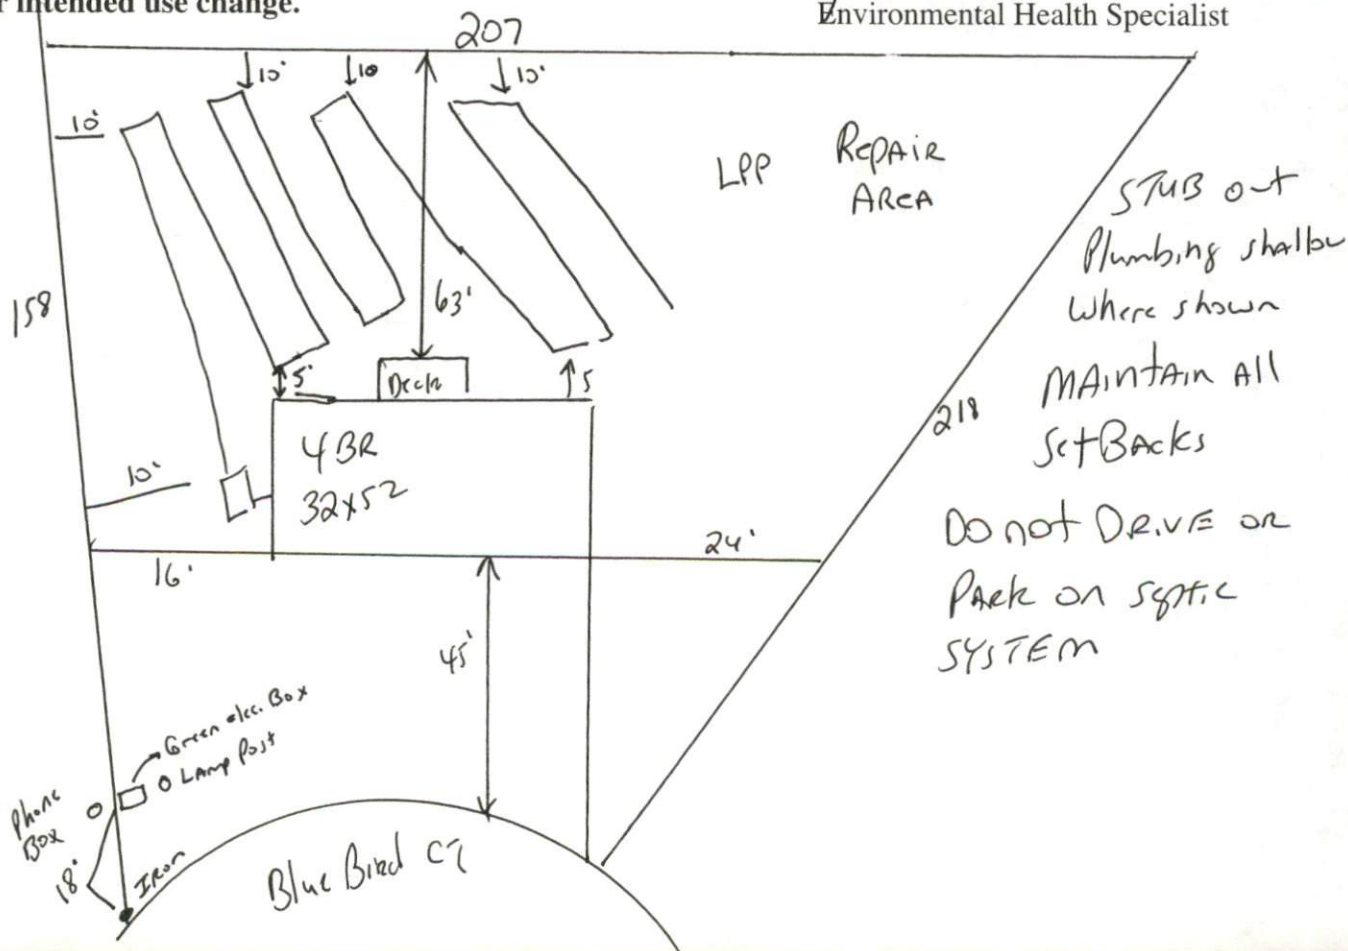 r intended use change.
Environmental Health Specialist
207
10'
10
10'
10'
LPP
Repair
Area
STUB out
Plumbing shallow
Where shown
MAintAin All
SetBAcks
Do not DRiVE OR
PArk on Septic
SYSTEM
158
63'
5'
Deck
5
218
4 BR
32x52
10'
24'
16'
45'
Green elec. Box
O LAmp Post
Phone
Box
18'
IRon
Blue Bird CT